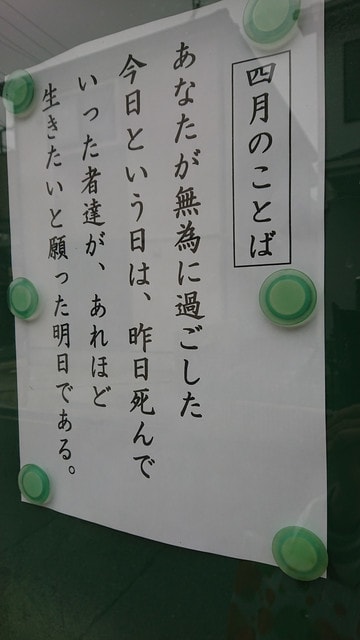 四月のことば
あなたが無為に過ごした
今日という日は、昨日死んで
いった者達が、あれほど
生きたいと願った明日である。